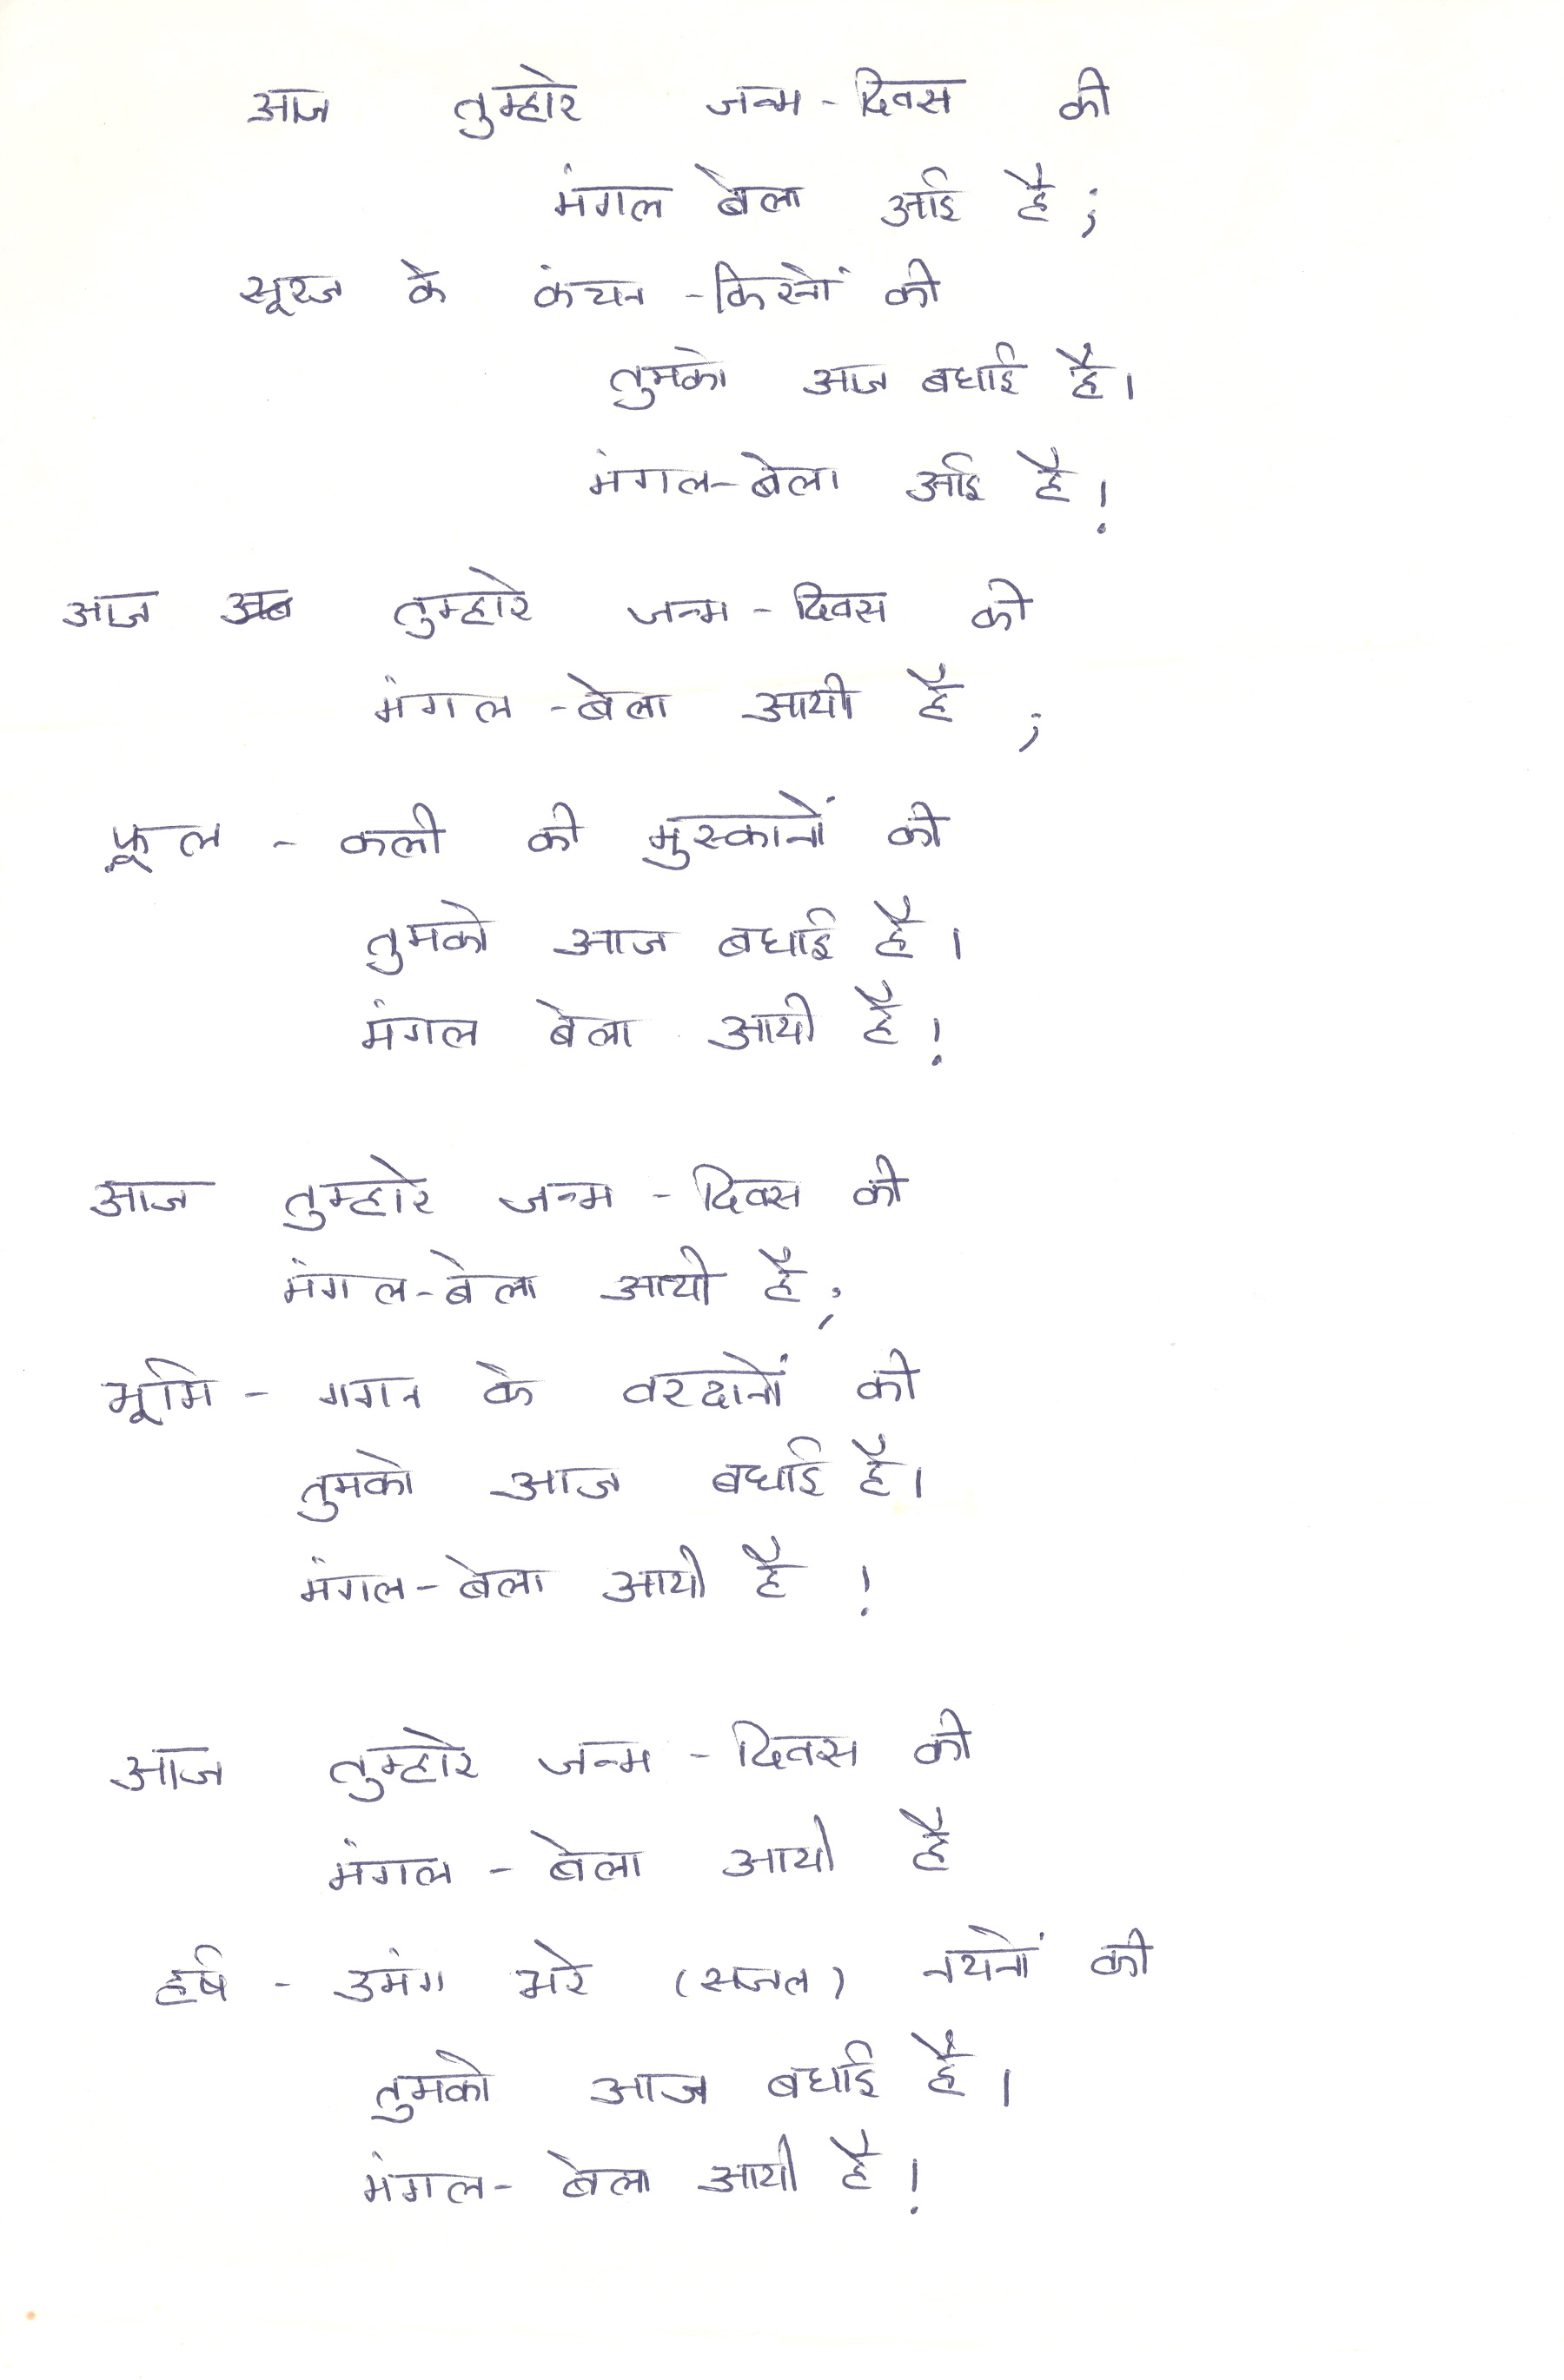 आज तुम्हारे जन्म - दिवस की
मंगल बेला आई है ;
सूरज के कंचन - किरनों की
तुमको आज बधाई है ।
मंगल - बेला आई है !
आज अब तुम्हारे जन्म - दिवस की
मंगल - बेला आयी है ;
फूल - कली की मुस्कानों की
तुमको आज बधाई है ।
मंगल बेला आयी है !
आज तुम्हारे जन्म - दिवस की
मंगल - बेला आयी है ;
भूमि - गगन के वरदानों की
तुमको आज बधाई है ।
मंगल - बेला आयी है !
आज तुम्हारे जन्म - दिवस की
मंगल - बेला आयी है
हर्ष - उमंग भरे (सजल) नयनों की
तुमको आज बधाई है ।
मंगल - बेला आयी है !